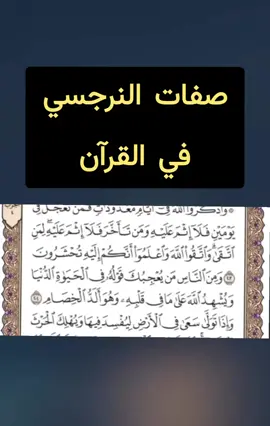 صفات النرجسي
في القرآن
وَاذْكُرُوا اللَّهَ فِي أَيَّامٍ مَعْدُودَاتٍ فَمَن تَعَجَّلَ فِي
يَوْمَيْنِ فَلَا إِثْمَ عَلَيْهِ وَمَن تَأَخَّرَ فَلَا إِثْمَ عَلَيْهِ لِمَنِ
اتَّقَىٰ وَاتَّقُوا اللَّهَ وَاعْلَمُوا أَنَّكُمْ إِلَيْهِ تُحْشَرُونَ
﴿٢٠٣﴾ وَمِنَ النَّاسِ مَن يُعْجِبُكَ قَوْلُهُ فِي الْحَيَوٰةِ الدُّنْيَا
وَيُشْهِدُ اللَّهَ عَلَىٰ مَا فِي قَلْبِهِ وَهُوَ أَلَدُّ الْخِصَامِ ﴿٢٠٤﴾
وَإِذَا تَوَلَّىٰ سَعَىٰ فِي الْأَرْضِ لِيُفْسِدَ فِيهَا وَيُهْلِكَ الْحَرْثَ